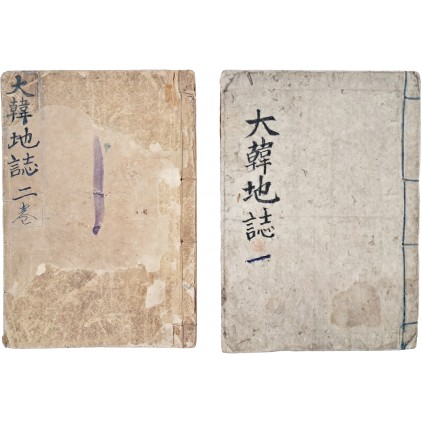 大韓地誌 二巻
大韓地誌 一